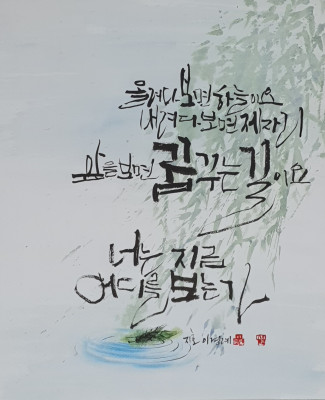 올려다보면 하늘이요
내려다보면 제자리
앞을 보면 꿈꾸는 길이요
너는 지금
어디를 보는가